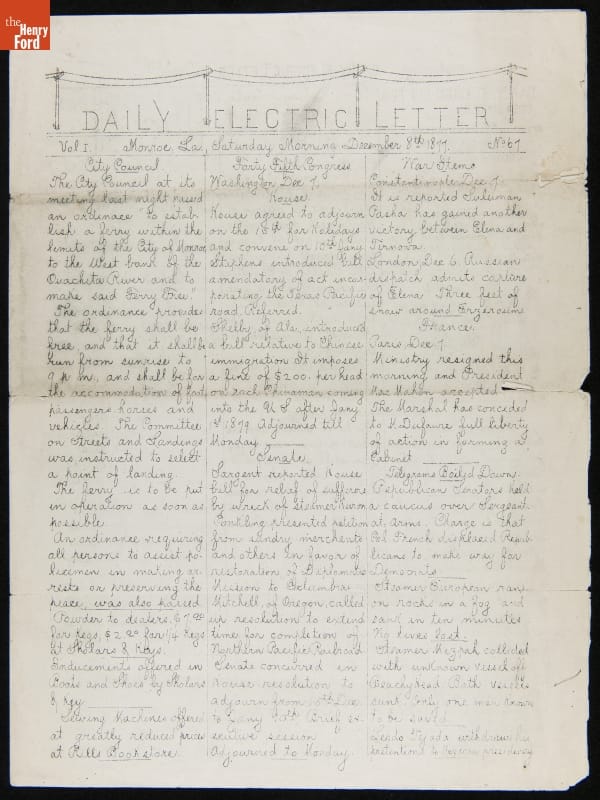 the
Henry
Ford
DAILY ELECTRIC LETTER
Vol I. Monroe, La, Saturday Morning December 8th 1877. No 67
City Council.
The City Council at its
meeting last night passed
an ordinace "To estab-
lish a ferry within the
limits of the City of Monroe,
to the West bank of the
Ouachita River and to
make said Ferry Free."
The ordinance provides
that the ferry shall be
free, and that it shall be
run from sunrise to
9 p m., and shall be for
the accommodation of foot
passengers horses and
vehicles. The Committee
on Streets and Landings
was instructed to select
a point of landing
The ferry is to be put
in operation as soon as
possible
An ordinance requiring
all persons to assist po-
licemen in making ar-
rests or preserving the
peace, was also passed
Powder to dealers, $7.00
for kegs, $2.20 for 1/4 kegs
at Sholars & Keys.
Inducements offered in
Boots and Shoes by Sholars
& Key
Sewing Machines offered
at greatly reduced prices
at Rills Bookstore.
Forty Fifth Congress
Washington Dec 7.
House.
House agreed to adjourn
on the 15th for Holidays
and convene on 10th Jany.
Stephens introduced bill
amendatory of act incor-
porating the Texas Pacific
road. Referred.
Shelby, of Ala, introduced
a bill relative to Chinese
immigration It imposes
a fine of $200. per head
on each Chinaman coming
into the U S after Jany
1st 1879 Adjourned till
Monday
Senate.
Sargent reported House
bill for relief of sufferers
by wreck of steamer Huron
Conkling presented petition
from sundry merchants
and others in favor of
restoration of Diplomatic
Mission to Columbia
Mitchell, of Oregon, called
up resolution to extend
time for completion of
Northern Pacific Railroad.
Senate concurred in
House resolution to
adjourn from 15th Dec.
to Jany 10th Brief ex-
ecutive session
Adjourned to Monday.
War Items
Constantinople Dec 7.
It is reported Suleiman
Pasha has gained another
victory between Elena and
Tirnova.
London, Dec 6. Russian
dispatch admits capture
of Elena Three feet of
snow around Erzeroum
France.
Paris Dec 7
Ministry resigned this
morning and President
MacMahon accepted
The Marshal has conceded
to M. Dufaure full liberty
of action in forming a
Cabinet
Telegrams Boil'd Down.
Republican Senators held
a caucus over Sergeant
at Arms. Charge is that
Col French displaced Repub-
licans to make way for
Democrats
Steamer European ran
on rocks in a fog and
sank in ten minutes
No lives lost.
Steamer Mizpah collided
with unknown vessel off
Beachyhead Both vessels
sunk Only one man known
to be saved
Lerdo Tejada withdraws his
pretentions to Mexican presidency